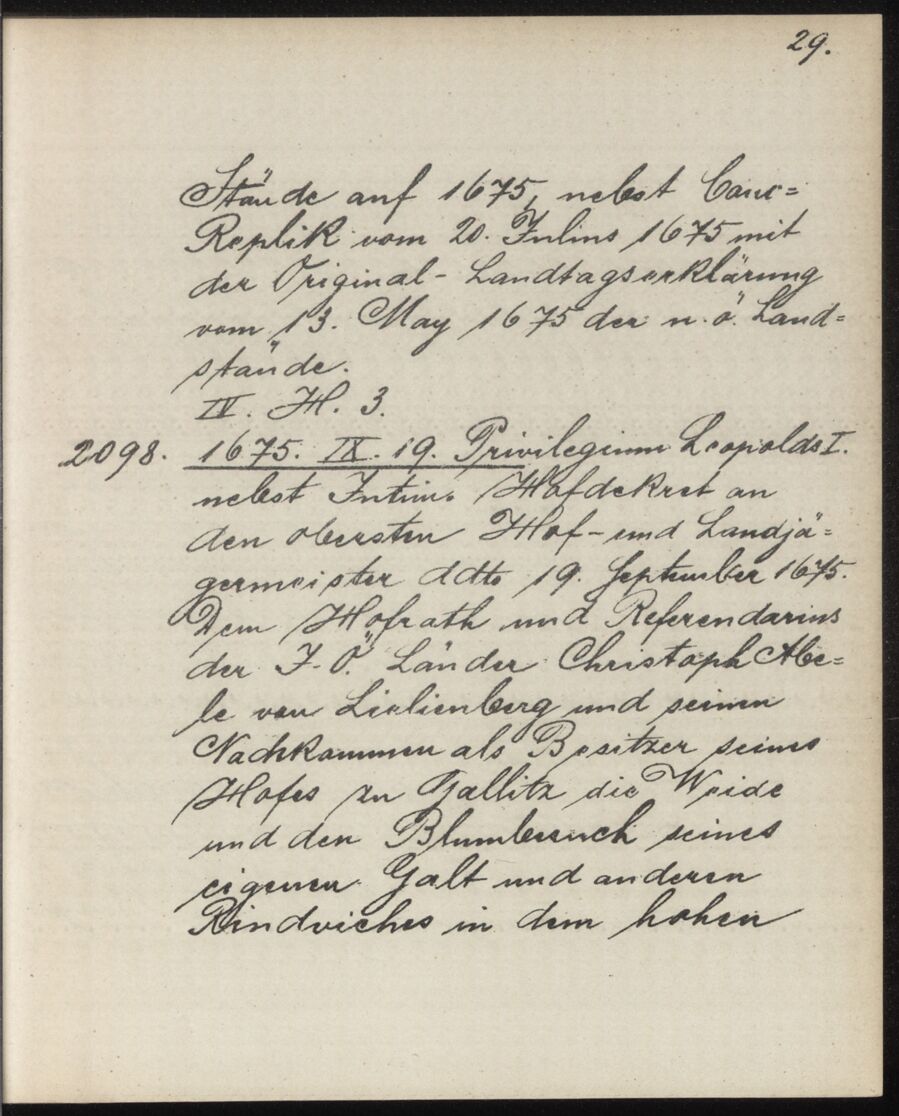 29.
Stände auf 1675, nebst Canc=
Replik vom 20. Julius 1675 mit
der Original- Landtagserklärung
vom 13. May 1675 der n. ö. Land=
stände.
IV. H. 3.
2098. 1675. IX. 19. Privilegium Leopolds I.
nebst Intim. Hofdekret an
den obersten Hof- und Landjä=
germeister ddto 19. September 1675.
Dem Hofrath und Referendarius
der I. Ö. Länder Christoph Abe=
le von Lielienberg und seinen
Nachkommen als Besitzer seines
Hofes zu Gallitz die Weide
und den Blumbesuch seines
eigenen Galt und anderen
Rindviehes in dem hohen